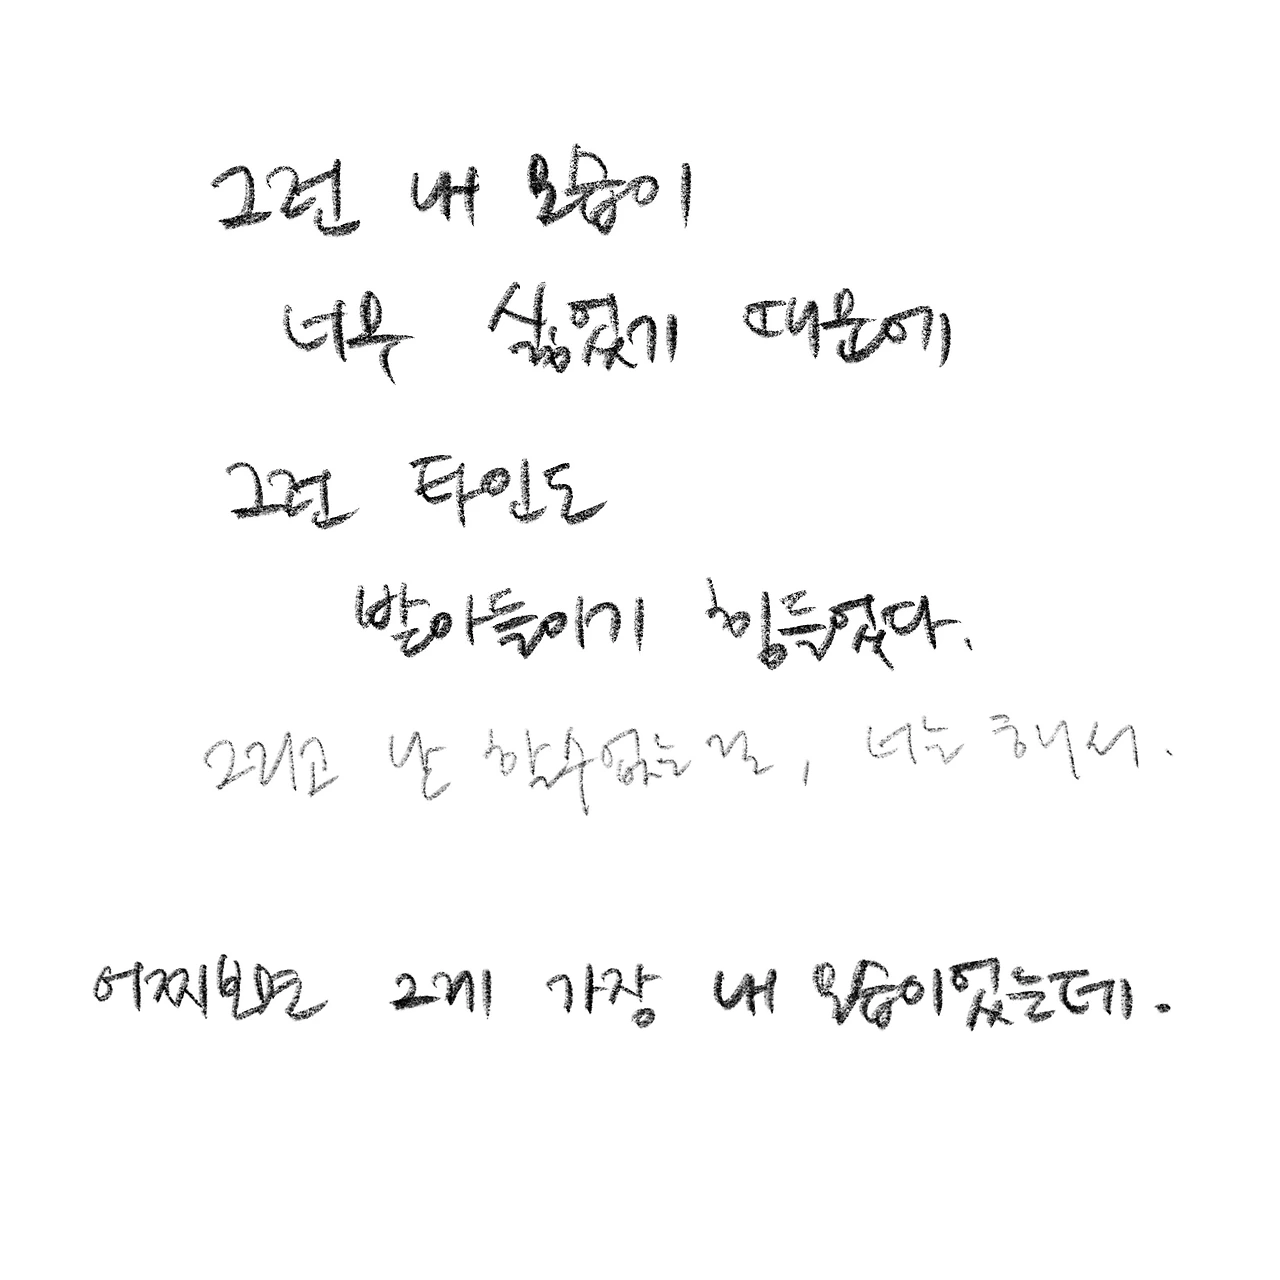 그런 내 모습이
너무 싫었기 때문에
그런 타인도
받아들이기 힘들었다.
그리고 난 할수없는걸, 너는 해서.
어찌보면 그게 가장 내 모습이었는데.